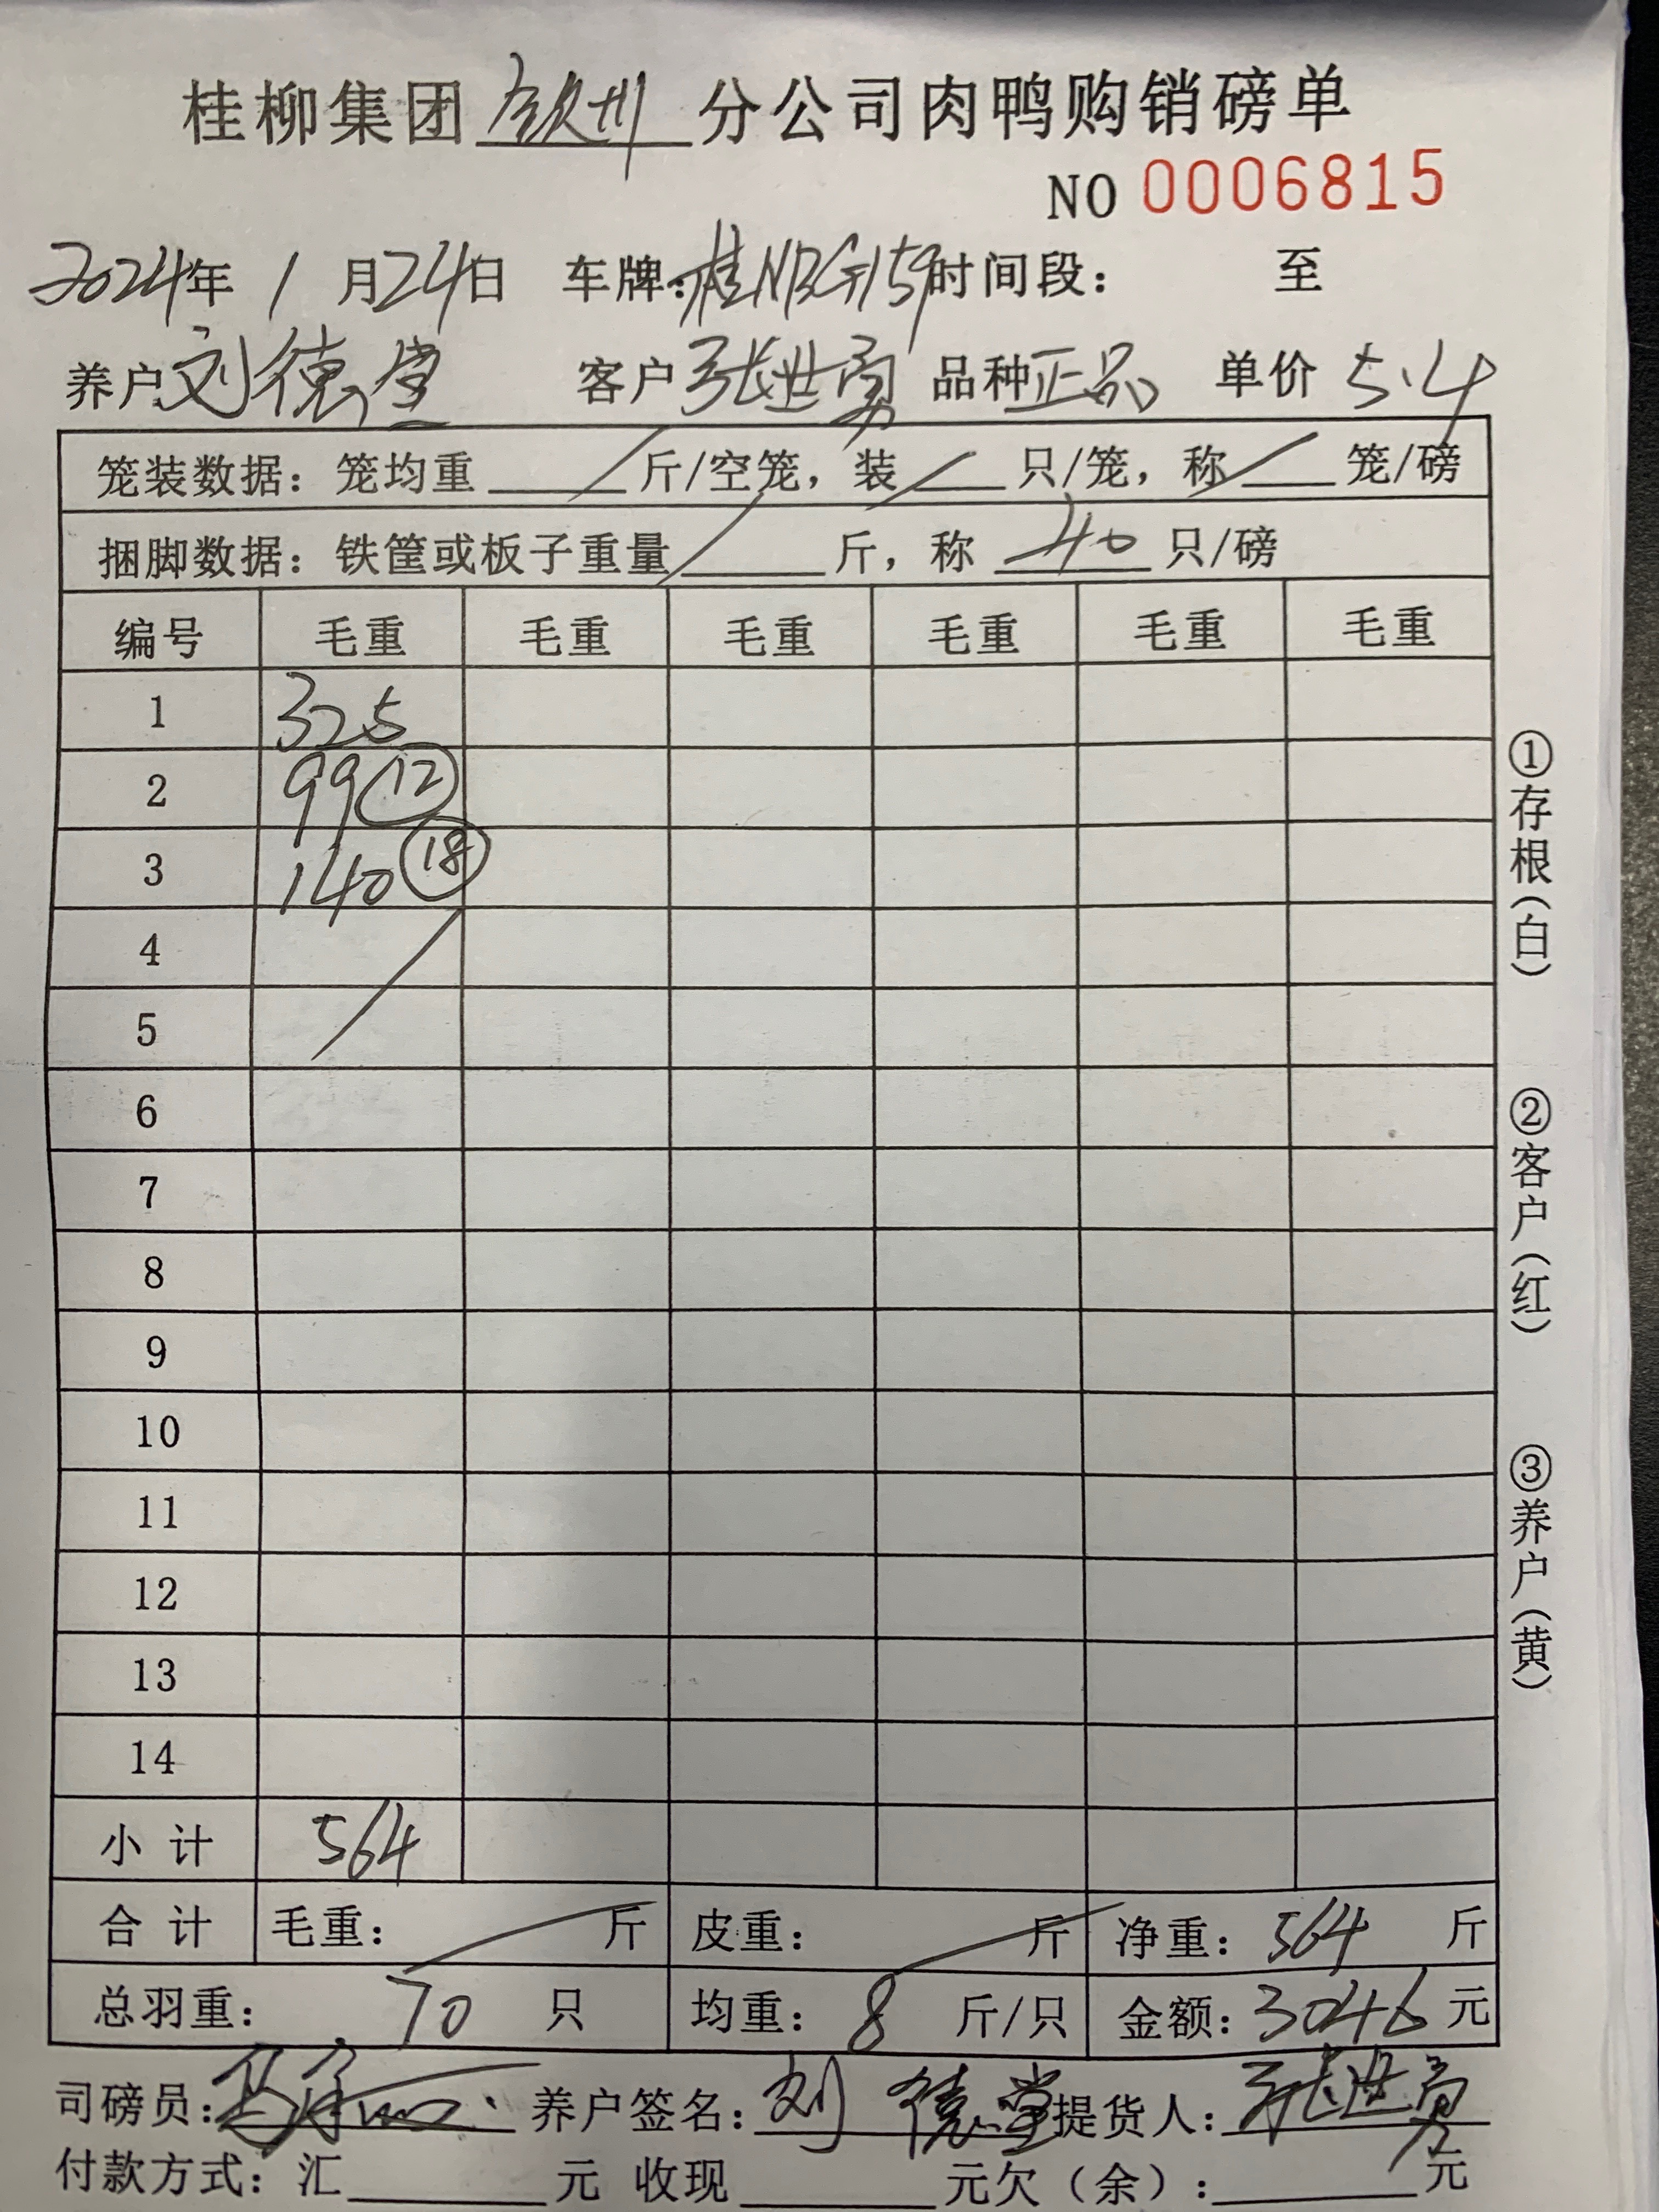 桂柳集团 钦州 分公司肉鸭购销磅单
NO 0006815
2024年 1 月24日 车牌:桂NBG159 时间段: 至
养户 刘德堂 客户 张世勇 品种 正品 单价 5.4
笼装数据:笼均重 / 斤/空笼,装 / 只/笼,称 / 笼/磅
捆脚数据:铁筐或板子重量 / 斤,称 40 只/磅
编号 毛重 毛重 毛重 毛重 毛重 毛重
1 325
2 99 ⑫
3 140 ⑱
4
5
6
7
8
9
10
11
12
13
14
小 计 564
合 计 毛重: / 斤 皮重: / 斤 净重: 564 斤
总羽重: 70 只 均重: 8 斤/只 金额: 3046 元
司磅员: 养户签名: 刘德堂 提货人: 张世勇
付款方式:汇 元 收现 元欠(余): 元
①存根(白)
②客户(红)
③养户(黄)